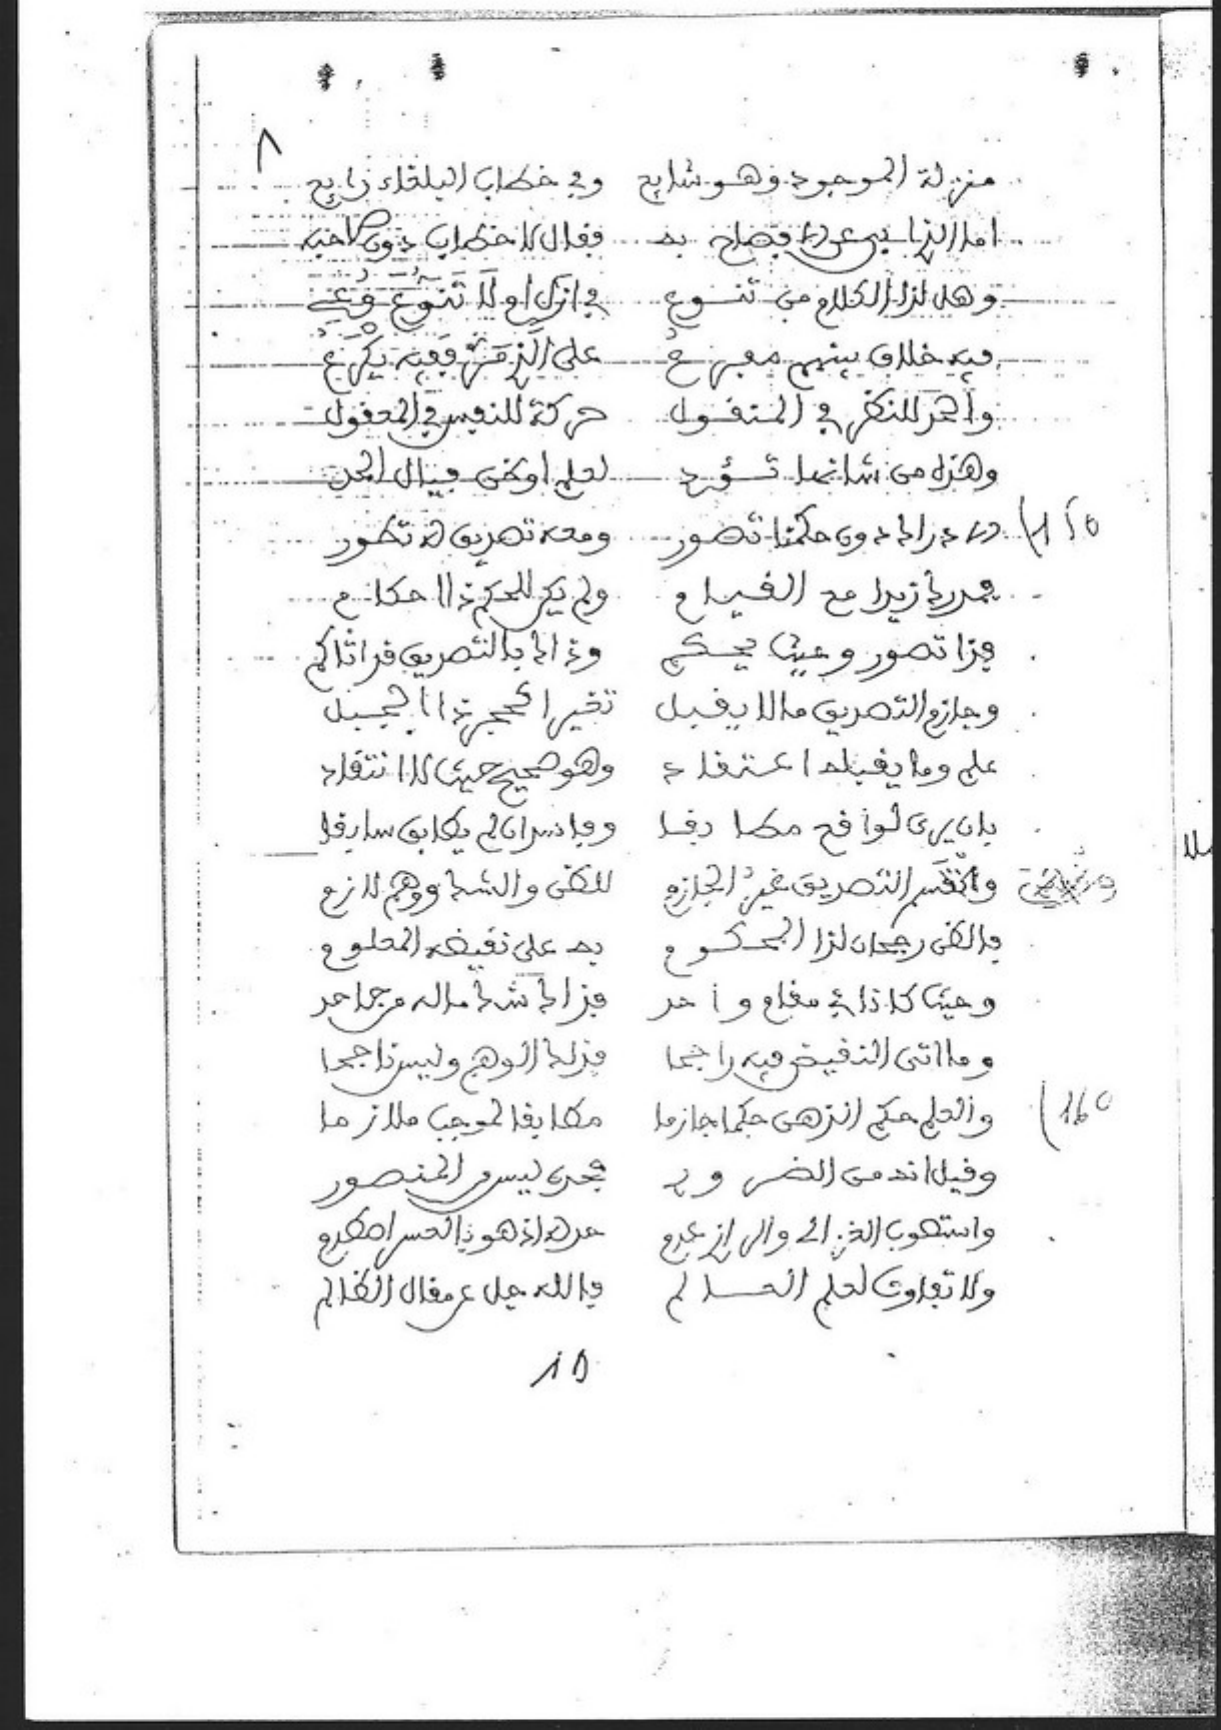 ٨
منزلة الموجود وهو شايع وفي خطاب البلغاء ذايع
اما الذي فقال لا خطاب دون
وهل لذا الكلام من تنوع في ازل او لا تنوع
فيه خلاف بينهم مفرع على الذي
والحد للنظر في المنقول حركة للنفس في المعقول
وهذه من شانها تؤد لعلم او ظن فيقال الحد
درك دون حكمنا تصور ومعه تصديق له تطور
150
زيدا مع القيام ولم يكن للحكم ذا احكام
فذا تصور وحيث يحكم وذاك بالتصديق
وجازم التصديق مالا يقبل تغيرا كحجر ذا الجبل
علم وما يقبله اعتقاد وهو صحيح حيث لا انتقاد
بان يرى لواقع مطابقا وفاسد ان لم يطابق سابقا
وانقسم التصديق غير الجازم للظن والشك ووهم لازم
فالظن رجحان لذا المحكوم به على نقيضه المعلوم
وحيث كان ذا في مقام واحد فذاك شك ماله من جاحد
وما اتى النقيض فيه راجحا فذلك الوهم وليس ناجحا
والعلم حكم الذهن حكما جازما مطابقا لموجب ملازما
160
وقيل انه من الضروري فحده ليس من المتصور
واستصوب الغزالي والرازي عدم حده اذ هو
ولا تفاوت لعلم العالم فالله جل عن مقال الظالم
15